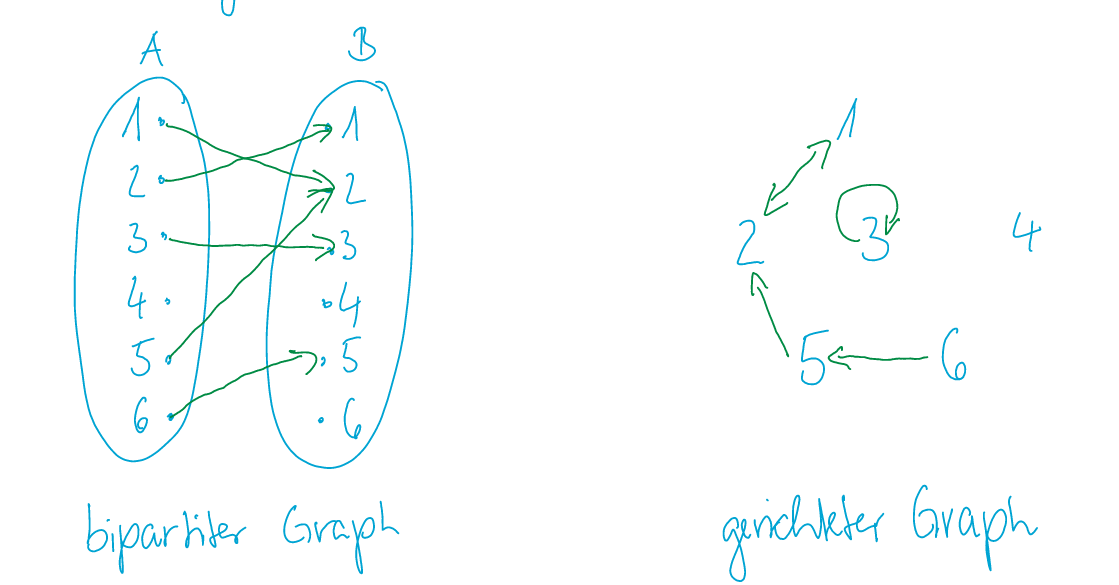 A B
1 1
2 2
3 3
4 4
5 5
6 6
bipartiter Graph
1
2 3 4
5 6
gerichteter Graph